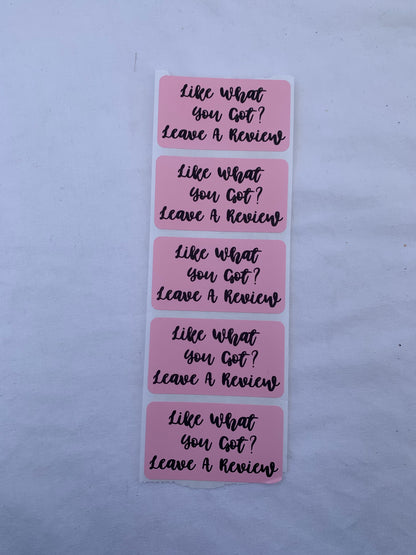 Like What
You Got?
Leave A Review
Like What
You Got?
Leave A Review
Like What
You Got?
Leave A Review
Like What
You Got?
Leave A Review
Like What
You Got?
Leave A Review